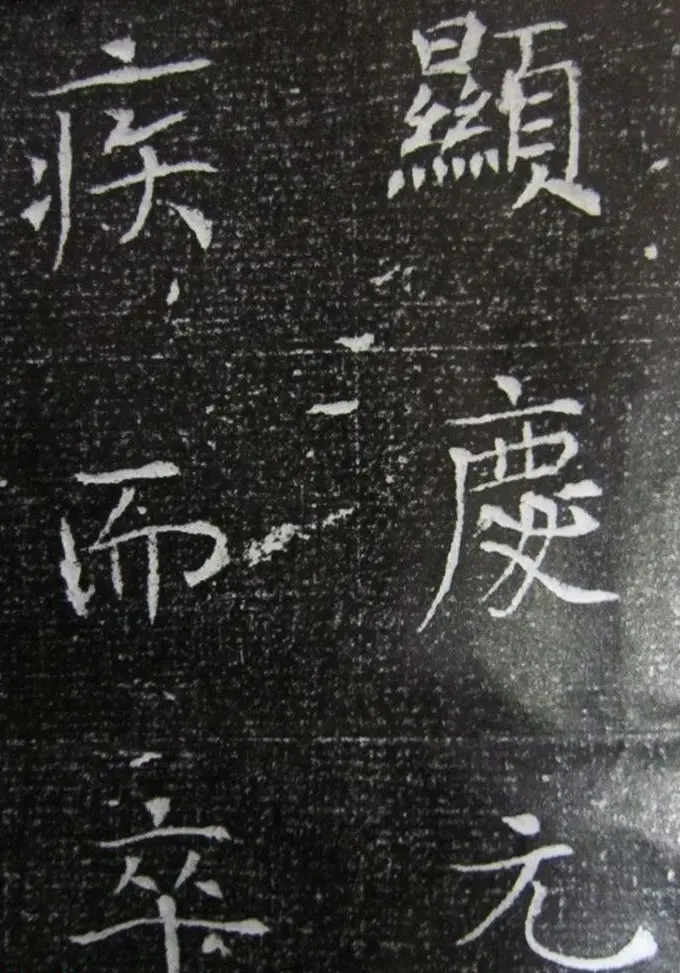 顯慶元
疾而卒